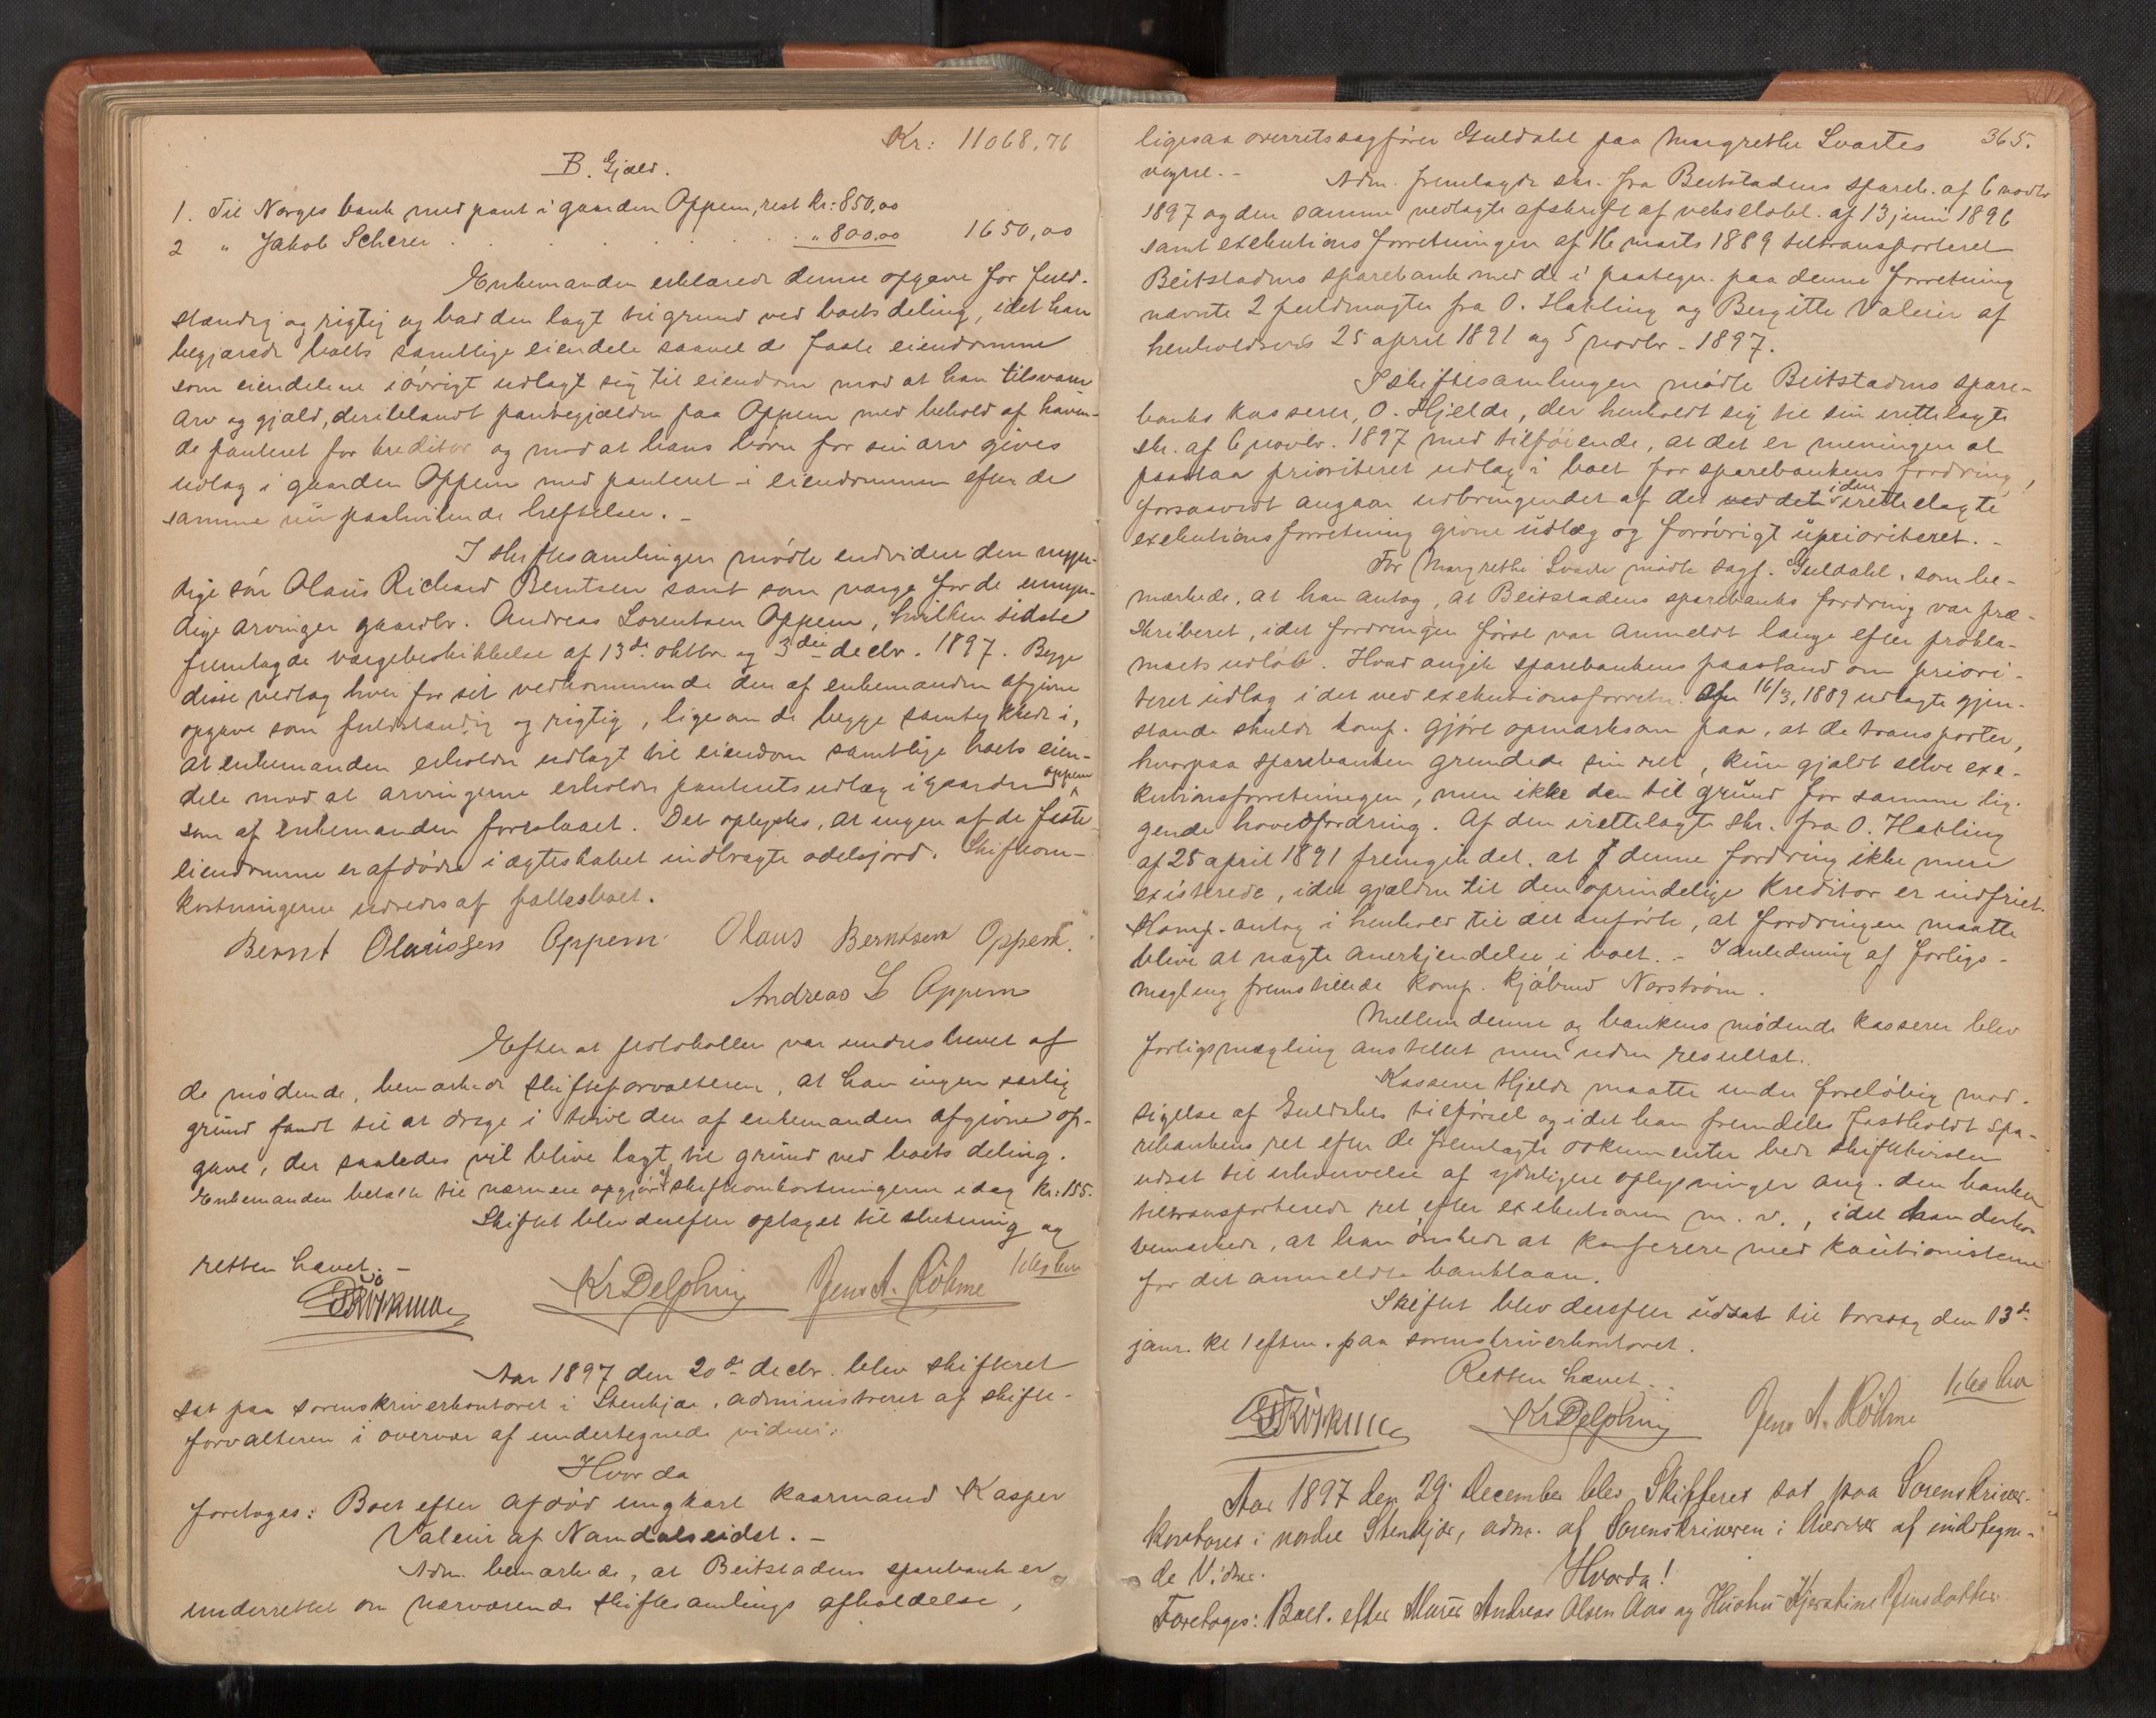 Kr: 11068,76
B. Gjæld.
1. Til Norges bank med pant i gaarden Oppem, rest Kr: 850,00
2 " Jakob Scherer . . . . . . " 800,00 1650,00
Enkemanden erklærede denne opgave for fuld-
stændig og rigtig og bad den lagt til grund ved boets deling, idet han
begjærede boets samtlige eiendele saavel de faste eiendomme
som eiendelene iøvrigt udlagt sig til eiendom mod at han tilsvarer
arv og gjæld, deriblandt pantegjælden paa Oppem med behold af haven-
de panteret for kreditor og mod at hans børn for sin arv gives
udlæg i gaarden Oppem med panteret i eiendommen efter de
samme nu paahvilende heftelser. -
I skiftesamlingen mødte endvidere den myn-
dige søn Olaus Richard Berntsen samt som værge for de umyn-
dige arvinger gaardbr. Andreas Lorentsen Oppem, hvilken sidste
fremlagde værgebeskikkelse af 13de oktbr. og 3die decbr. 1897. Begge
disse vedtog hver for sit vedkommende den af enkemanden afgivne
opgave som fuldstændig og rigtig, ligesom de begge samtykkede i,
at enkemanden erholder udlagt til eiendom samtlige boets eien-
dele mod at arvingerne erholder panteretsudlæg i gaarden Oppem
som af enkemanden foreslaaet. Det oplystes, at ingen af de faste
eiendomme er afdøde i ægteskabet indbragte odelsjord. Skifteom-
kostningerne udredes af fællesboet.
Bernt Olaüssen Oppem Olaus Berntsen Oppem.
Andreas L Oppem
Efter at protokollen var underskrevet af
de mødende, bemærkede skifteforvalteren, at han ingen særlig
grund fandt til at drage i tvivl den af enkemanden afgivne op-
gave, der saaledes vil blive lagt til grund ved boets deling.
Enkemanden betalte til nærmere opgjør af skifteomkostningerne idag Kr: 155.
Skiftet blev derefter optaget til slutning og
retten hævet. -
Kr Delphin Jens A. Röhme
Aar 1897 den 20de decbr. blev skifteret
sat paa sorenskriverkontoret i Stenkjær, administreret af skifte-
forvalteren i overvær af undertegnede vidner:
Hvorda
foretoges: Boet efter afdød ungkarl kaarmand Kasper
Valeur af Namdalseidet. -
Adm. bemærkede, at Beitstadens sparebank er
underrettet om nærværende skiftesamlings afholdelse,
365.
ligesaa overretssagfører Guldahl paa Margrethe Svartes
vegne. -
Adm. fremlagde skr. fra Beitstadens spareb. af 6 novbr
1897 og den samme vedlagte afskrift af vekselobl. af 13 juni 1896
samt exekutionsforretningen af 16 marts 1889 tiltransporteret
Beitstadens sparebank med de i paategn. paa denne forretning
nævnte 2 fuldmagter fra O. Hakling og Bergitte Valeur af
henholdsvis 25 april 1891 og 5 novbr. 1897.
I skiftesamlingen mødte Beitstadens spare-
banks kasserer, O. Hjelde, der henholdt sig til sin irettelagte
skr. af 6 novbr. 1897 med tilføiende, at det er meningen at
paastaa prioriteret udlæg i boet for sparebankens fordring,
forsaavidt angaar udbringendet af det ved det i den irettelagte
exekutionsforretning givne udlæg og forøvrigt uprioriteret. -
For Margrethe Svarte mødte sagf. Guldahl, som be-
mærkede, at han antog, at Beitstadens sparebanks fordring var præ-
skriberet, idet fordringen først var anmeldt længe efter prokla-
maets udløb. Hvad angik sparebankens paastand om priori-
teret udlæg i det ved exekutionsforretn. af 16/3. 1889 udlagte gjen-
stande skulde komp. gjøre opmærksom paa, at de transporter,
hvorpaa sparebanken grundede sin ret, kun gjaldt selve exe-
kutionsforretningen, men ikke den til grund for samme lig-
gende hovedfordring. Af den irettelagte skr. fra O. Hakling
af 25 april 1891 fremgik det, at denne fordring ikke mere
existerede, idet gjælden til den oprindelige kreditor er indfriet.
Komp. antog i henhold til det anførte, at fordringen maatte
blive at nægte anerkjendelse i boet. - I anledning af forligs-
mægling fremstillede komp. kjøbmd Norstrøm.
Mellem denne og bankens mødende kasserer blev
forligsmægling anstillet men uden resultat.
Kasserer Hjelde maatte under foreløbig mod-
sigelse af Guldahls tilførsel og idet han fremdeles fastholdt spa-
rebankens ret efter de fremlagte dokumenter bede skiftet
udsat til erhvervelse af yderligere oplysninger ang. den banken
tiltransporterede ret efter exekutionen m. v., idet han derhos
bemærkede, at han ønskede at konferere med kautionisterne
for det anmeldte banklaan.
Skiftet blev derefter udsat til torsdag den 13de
janr. kl 1 efterm. paa sorenskriverkontoret.
Retten hævet. -
Kr Delphin Jens A. Röhme
Aar 1897 den 29. December blev Skifteret sat paa Sorenskriver-
kontoret i nordre Stenkjær, adm. af Sorenskriveren i Overvær af undertegne-
de Vidner.
Hvorda!
Foretoges: Boet efter Murer Andreas Olsen Aas og Hustru Kjerstine Jensdatter